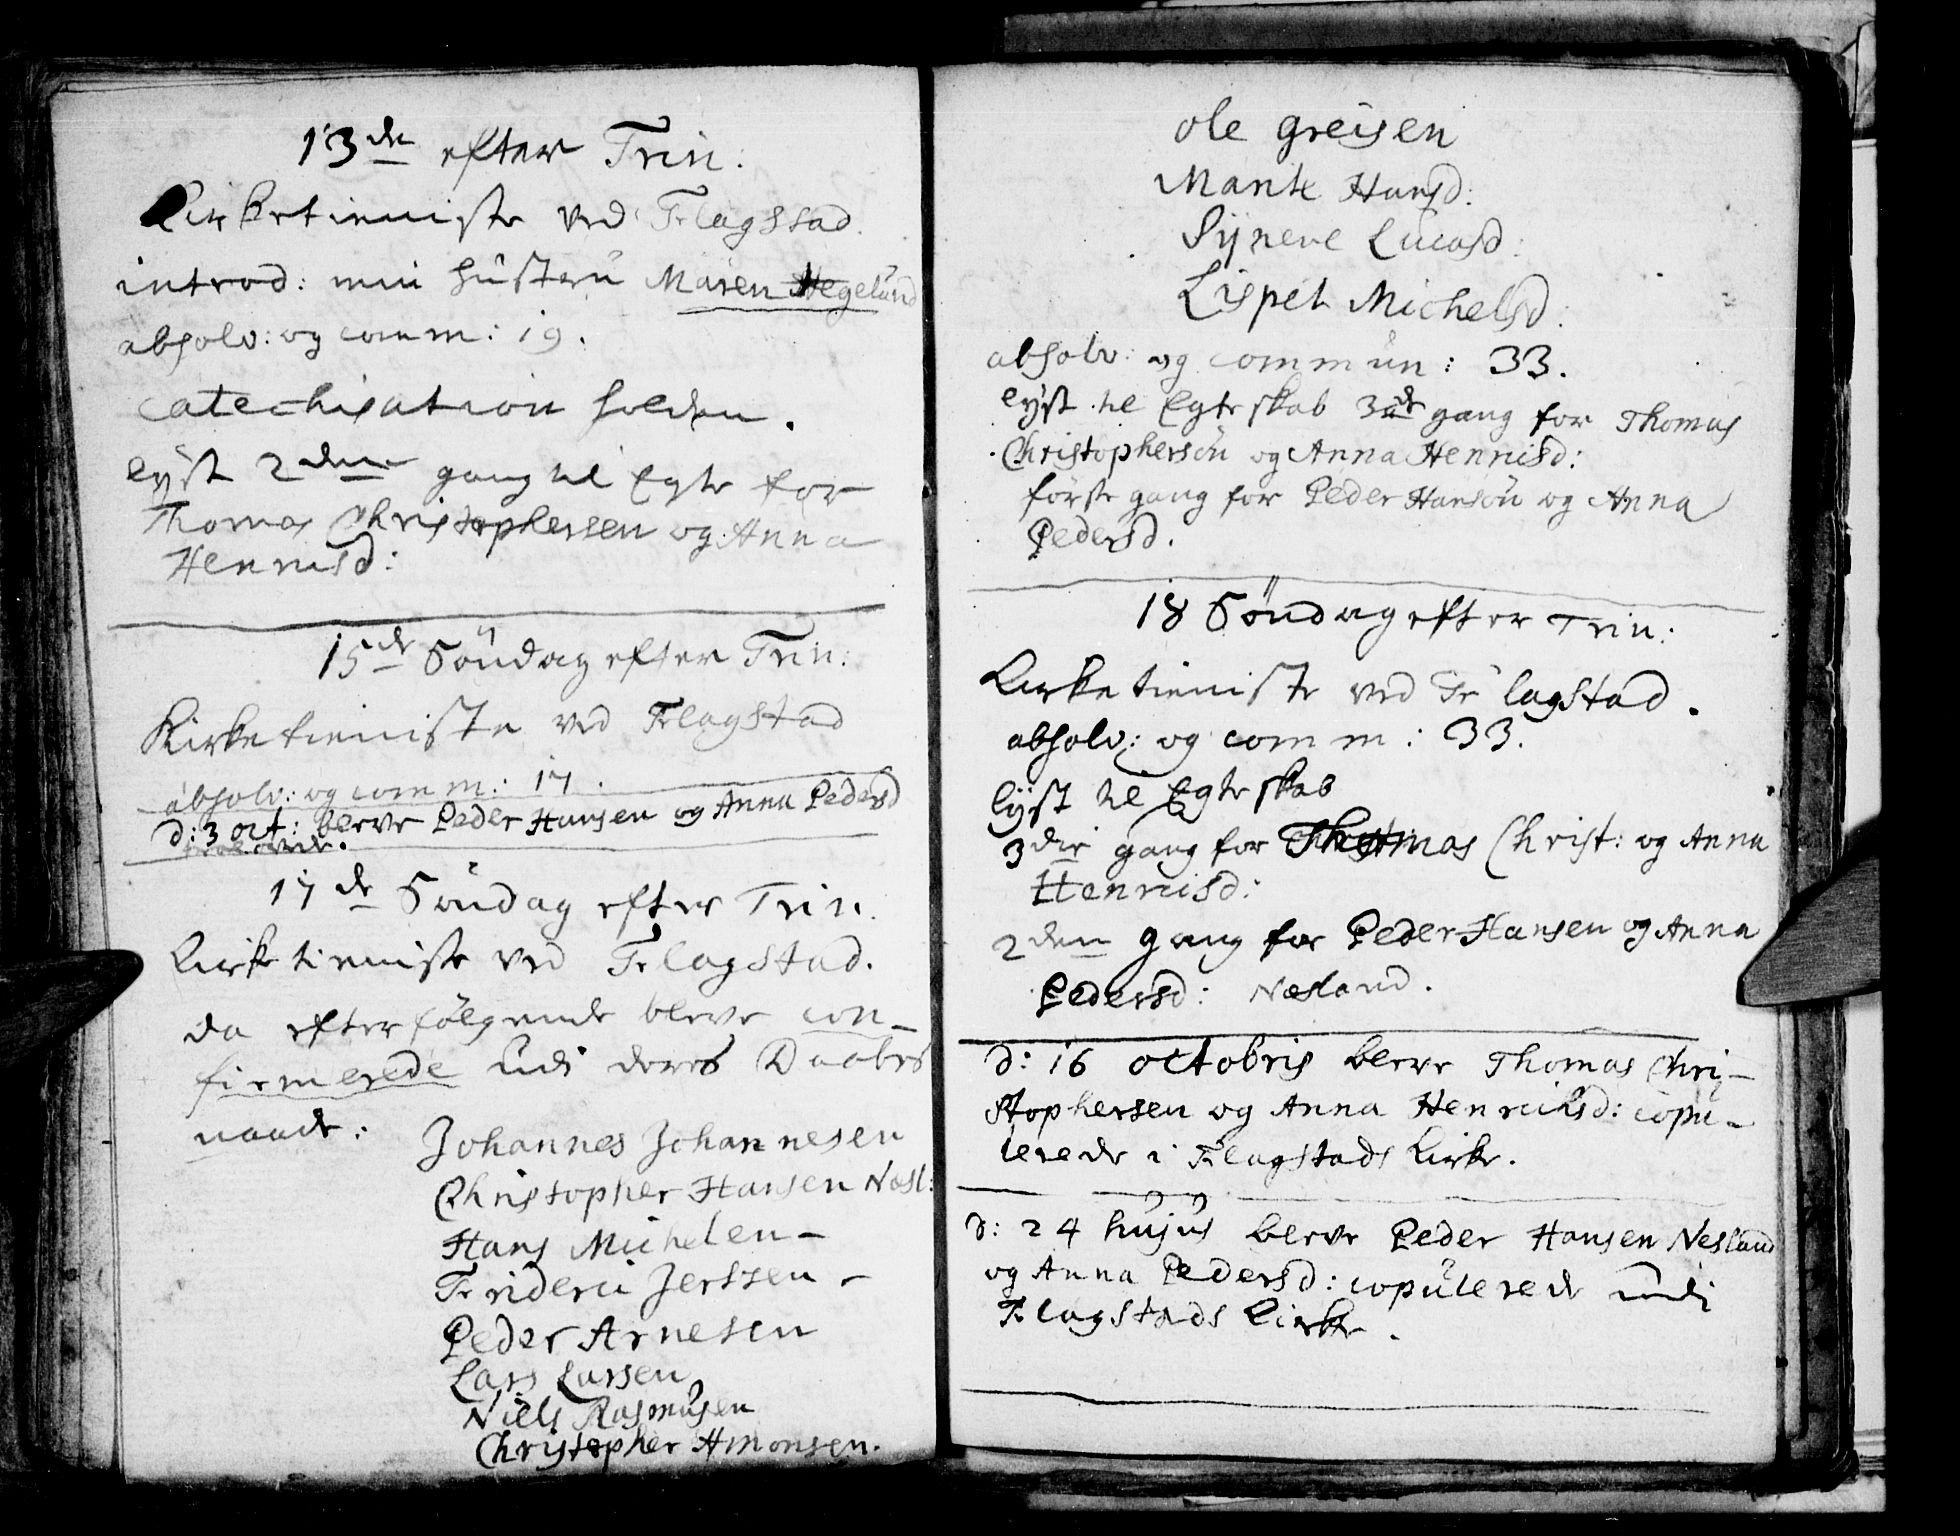 13de efter Trin:
Kirketieniste ved Flagstad.
introd: min hustru Maren Hegelund
absolv: og comm: 19.
catechisation holden.
lyst 2den gang til Egte for
Thomas Christophersen og Anna
Henricsd:
15de Söndag efter Trin:
Kirketieniste ved Flagstad
absolv: og comm: 17.
d: 3 oct: bleve Peder Hansen og Anna Pedersd
17de Söndag efter Trin.
Kirketieniste ved Flagstad.
da efterfølgende bleve con-
firmerede udi deres Daabes
naade:
Johannes Johannesen
Christopher Hansen Næsl:
Hans Michelen -
Friderici Jerssen -
Peder Arnesen
Lars Larsen
Niels Rasmusen
Christopher Amonsen.
ole greisen
Marite Hansd:
Syneve Lucasd:
Lispet Michelsd:
absolv: og commun: 33.
lyst til Egteskab 3de gang for Thomas
Christophersön og Anna Henricsd:
förste gang for Peder Hansön og Anna
Pedersd.
18 Söndag efter Trin:
Kirketieniste ved Flagstad.
absolv: og comm: 33.
lyst til Egteskab
3die gang for Thomas Christ: og Anna
Henricsd:
2den gang for Peder Hansen og Anna
Pedersd: Næsland.
d: 16 octobris bleve Thomas Chri-
stophersen og Anna Henrichsd: copu-
lerede i Flagstads Kirke.
d: 24 hujus bleve Peder Hansen Nesland
og Anna Pedersd: copulerede udi
Flagstads Kirke.